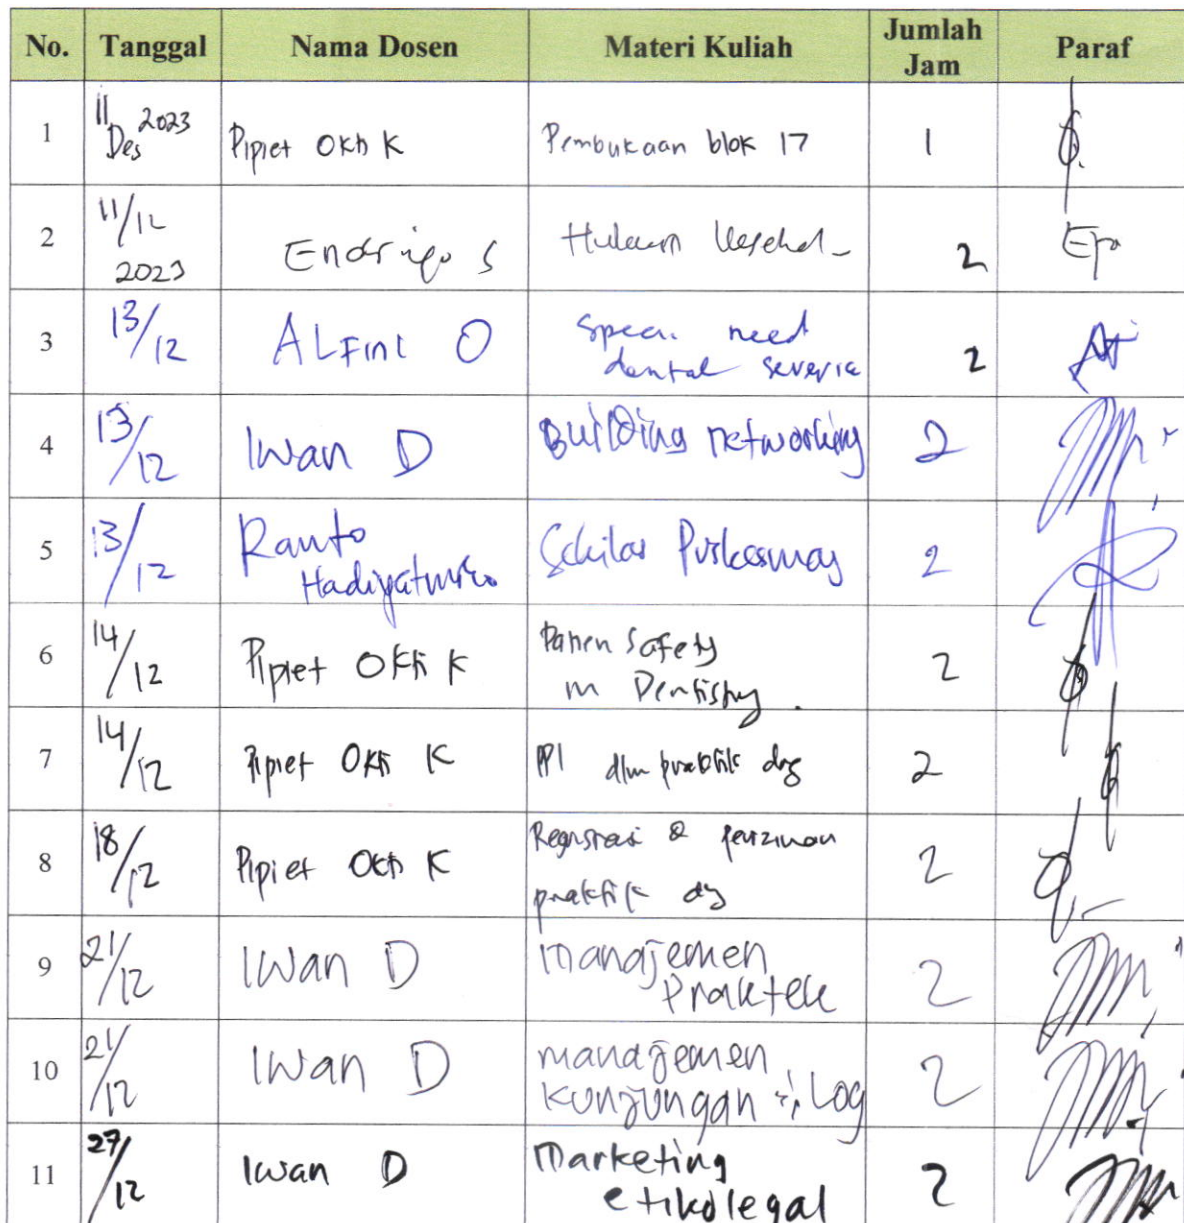 No. Tanggal Nama Dosen Materi Kuliah Jumlah Jam Paraf
1 11 Des 2023 Pipiet Okti K Pembukaan blok 17 1
2 11/12 2023 Endrigo S Hukum 2
3 13/12 ALFINI O need dental 2
4 13/12 Iwan D Building networking 2
5 13/12 Ranto Sekilas Puskesmas 2
6 14/12 Pipiet Okti K Patien Safety in Dentistry. 2
7 14/12 Pipiet Okti K PPI dlm praktik drg 2
8 18/12 Pipiet Okti K Registrasi & perizinan praktik drg 2
9 21/12 Iwan D manajemen Praktek 2
10 21/12 Iwan D manajemen Kunjungan Log 2
11 27/12 Iwan D Marketing etikolegal 2